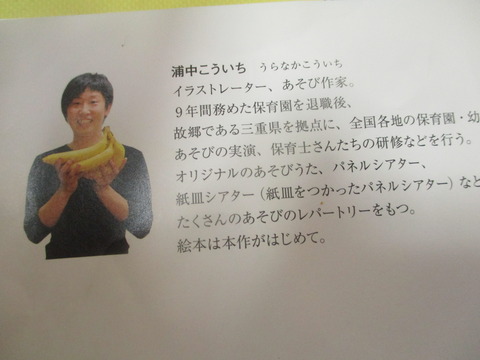 浦中こういち　うらなかこういち
イラストレーター、あそび作家。
９年間務めた保育園を退職後、
故郷である三重県を拠点に、全国各地の保育園・幼
あそびの実演、保育士さんたちの研修などを行う。
オリジナルのあそびうた、パネルシアター、
紙皿シアター（紙皿をつかったパネルシアター）など
たくさんのあそびのレパートリーをもつ。
絵本は本作がはじめて。